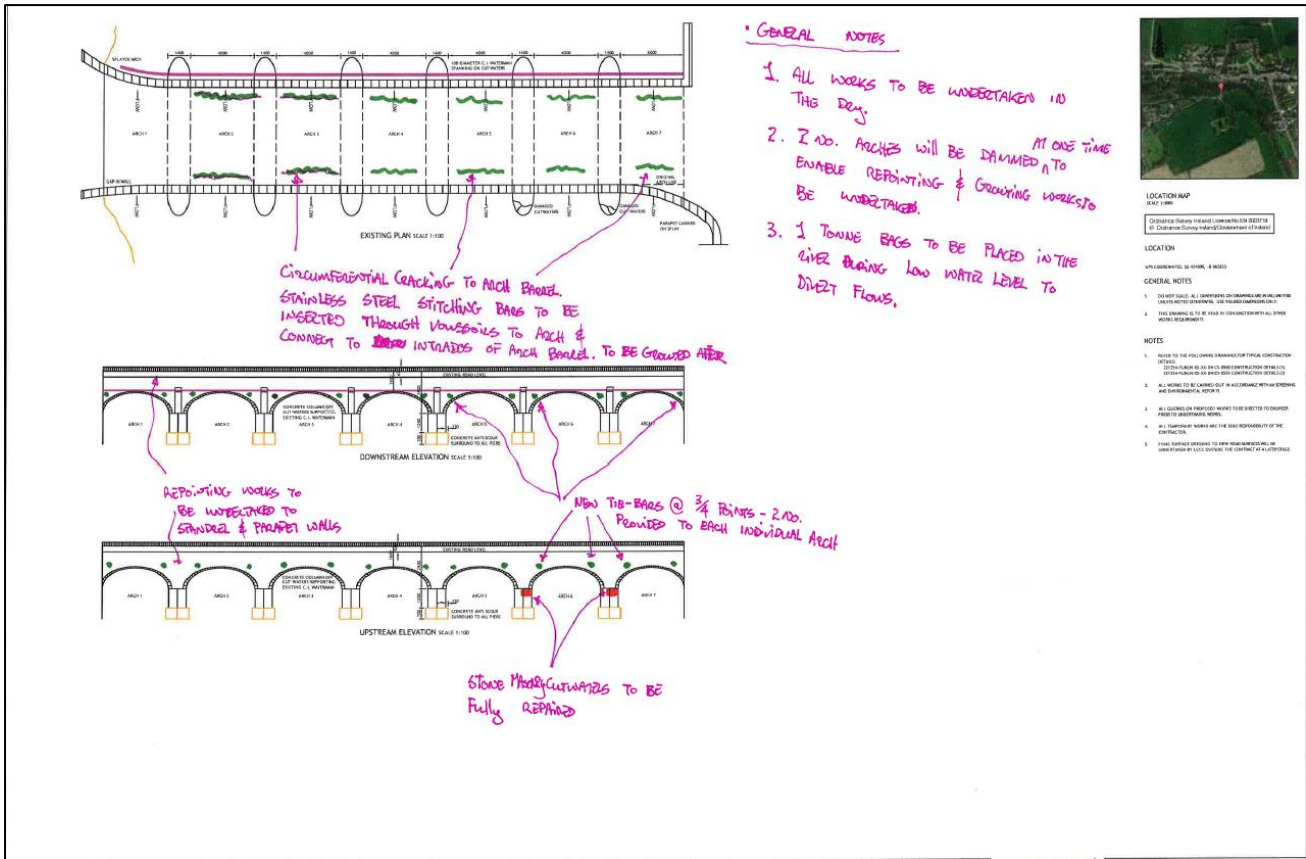 1400 6000 1400 6000 1400 6000 1400 6000 1400 6200 1400 6000
SPLAYED ARCH
100 DIAMETER C.I. WATERMAIN
SPANNING ON CUTWATERS
FLOW FLOW FLOW FLOW FLOW FLOW
ARCH 1 ARCH 2 ARCH 3 ARCH 4 ARCH 5 ARCH 6 ARCH 7
FLOW FLOW FLOW FLOW FLOW FLOW
GAP IN WALL
ORIGINAL
ARCH LINE
DAMAGED
CUTWATERS
DAMAGED
CUTWATERS
PARAPET CARRIED
ON SPLAY
EXISTING PLAN SCALE 1:100
CIRCUMFERENTIAL CRACKING TO ARCH BARREL.
STAINLESS STEEL STITCHING BARS TO BE
INSERTED THROUGH VOUSSOIRS TO ARCH &
CONNECT TO INTRADOS OF ARCH BARREL. TO BE GROUTED AFTER
EXISTING ROAD LEVEL
CONCRETE COLUMNS OFF
CUT WATERS SUPPORTING
EXISTING C.I. WATERMAIN
ARCH 1 ARCH 2 ARCH 3 ARCH 4 ARCH 5 ARCH 6 ARCH 7
CONCRETE ANTI SCOUR
SURROUND TO ALL PIERS
DOWNSTREAM ELEVATION SCALE 1:100
REPOINTING WORKS TO
BE UNDERTAKED TO
SPANDREL & PARAPET WALLS
NEW TIE-BARS @ 3/4 POINTS - 2 NO.
PROVIDED TO EACH INDIVIDUAL ARCH
EXISTING ROAD LEVEL
CONCRETE COLUMNS OFF
CUT WATERS SUPPORTING
EXISTING C.I. WATERMAIN
ARCH 1 ARCH 2 ARCH 3 ARCH 4 ARCH 5 ARCH 6 ARCH 7
CONCRETE ANTI SCOUR
SURROUND TO ALL PIERS
UPSTREAM ELEVATION SCALE 1:100
STONE MASONRY CUTWATERS TO BE
Fully REPAIRED
• GENERAL NOTES
1. ALL WORKS TO BE UNDERTAKEN IN
THE DRY.
2. 2 NO. ARCHES will BE DAMMED AT ONE TIME TO
ENABLE REPOINTING & GROUTING WORKS TO
BE UNDERTAKED.
3. 1 TONNE BAGS TO BE PLACED IN THE
RIVER DURING LOW WATER LEVEL TO
DIVERT FLOWS.
LOCATION MAP
SCALE 1:5000
Ordnance Survey Ireland Licence No
© Ordnance Survey Ireland/Government of Ireland
LOCATION
GPS COORDINATES:
GENERAL NOTES
1. DO NOT SCALE. ALL DIMENSIONS ON DRAWINGS ARE IN MILLIMETERS
UNLESS NOTED OTHERWISE. USE FIGURED DIMENSIONS ONLY.
2. THIS DRAWING IS TO BE READ IN CONJUNCTION WITH ALL OTHER
WORKS REQUIREMENTS
NOTES
1. REFER TO THE FOLLOWING DRAWINGS FOR TYPICAL CONSTRUCTION
DETAILS:
CONSTRUCTION DETAILS (1)
CONSTRUCTION DETAILS (2)
2. ALL WORKS TO BE CARRIED OUT IN ACCORDANCE WITH AA SCREENING
AND ENVIRONMENTAL REPORTS.
3. ALL QUERIES ON PROPOSED WORKS TO BE DIRECTED TO ENGINEER
PRIOR TO UNDERTAKING WORKS.
4. ALL TEMPORARY WORKS ARE THE SOLE RESPONSIBILITY OF THE
CONTRACTOR.
5. FINAL SURFACE DRESSING TO NEW ROAD SURFACES WILL BE
UNDERTAKEN BY LCCC OUTSIDE THE CONTRACT AT A LATER STAGE.